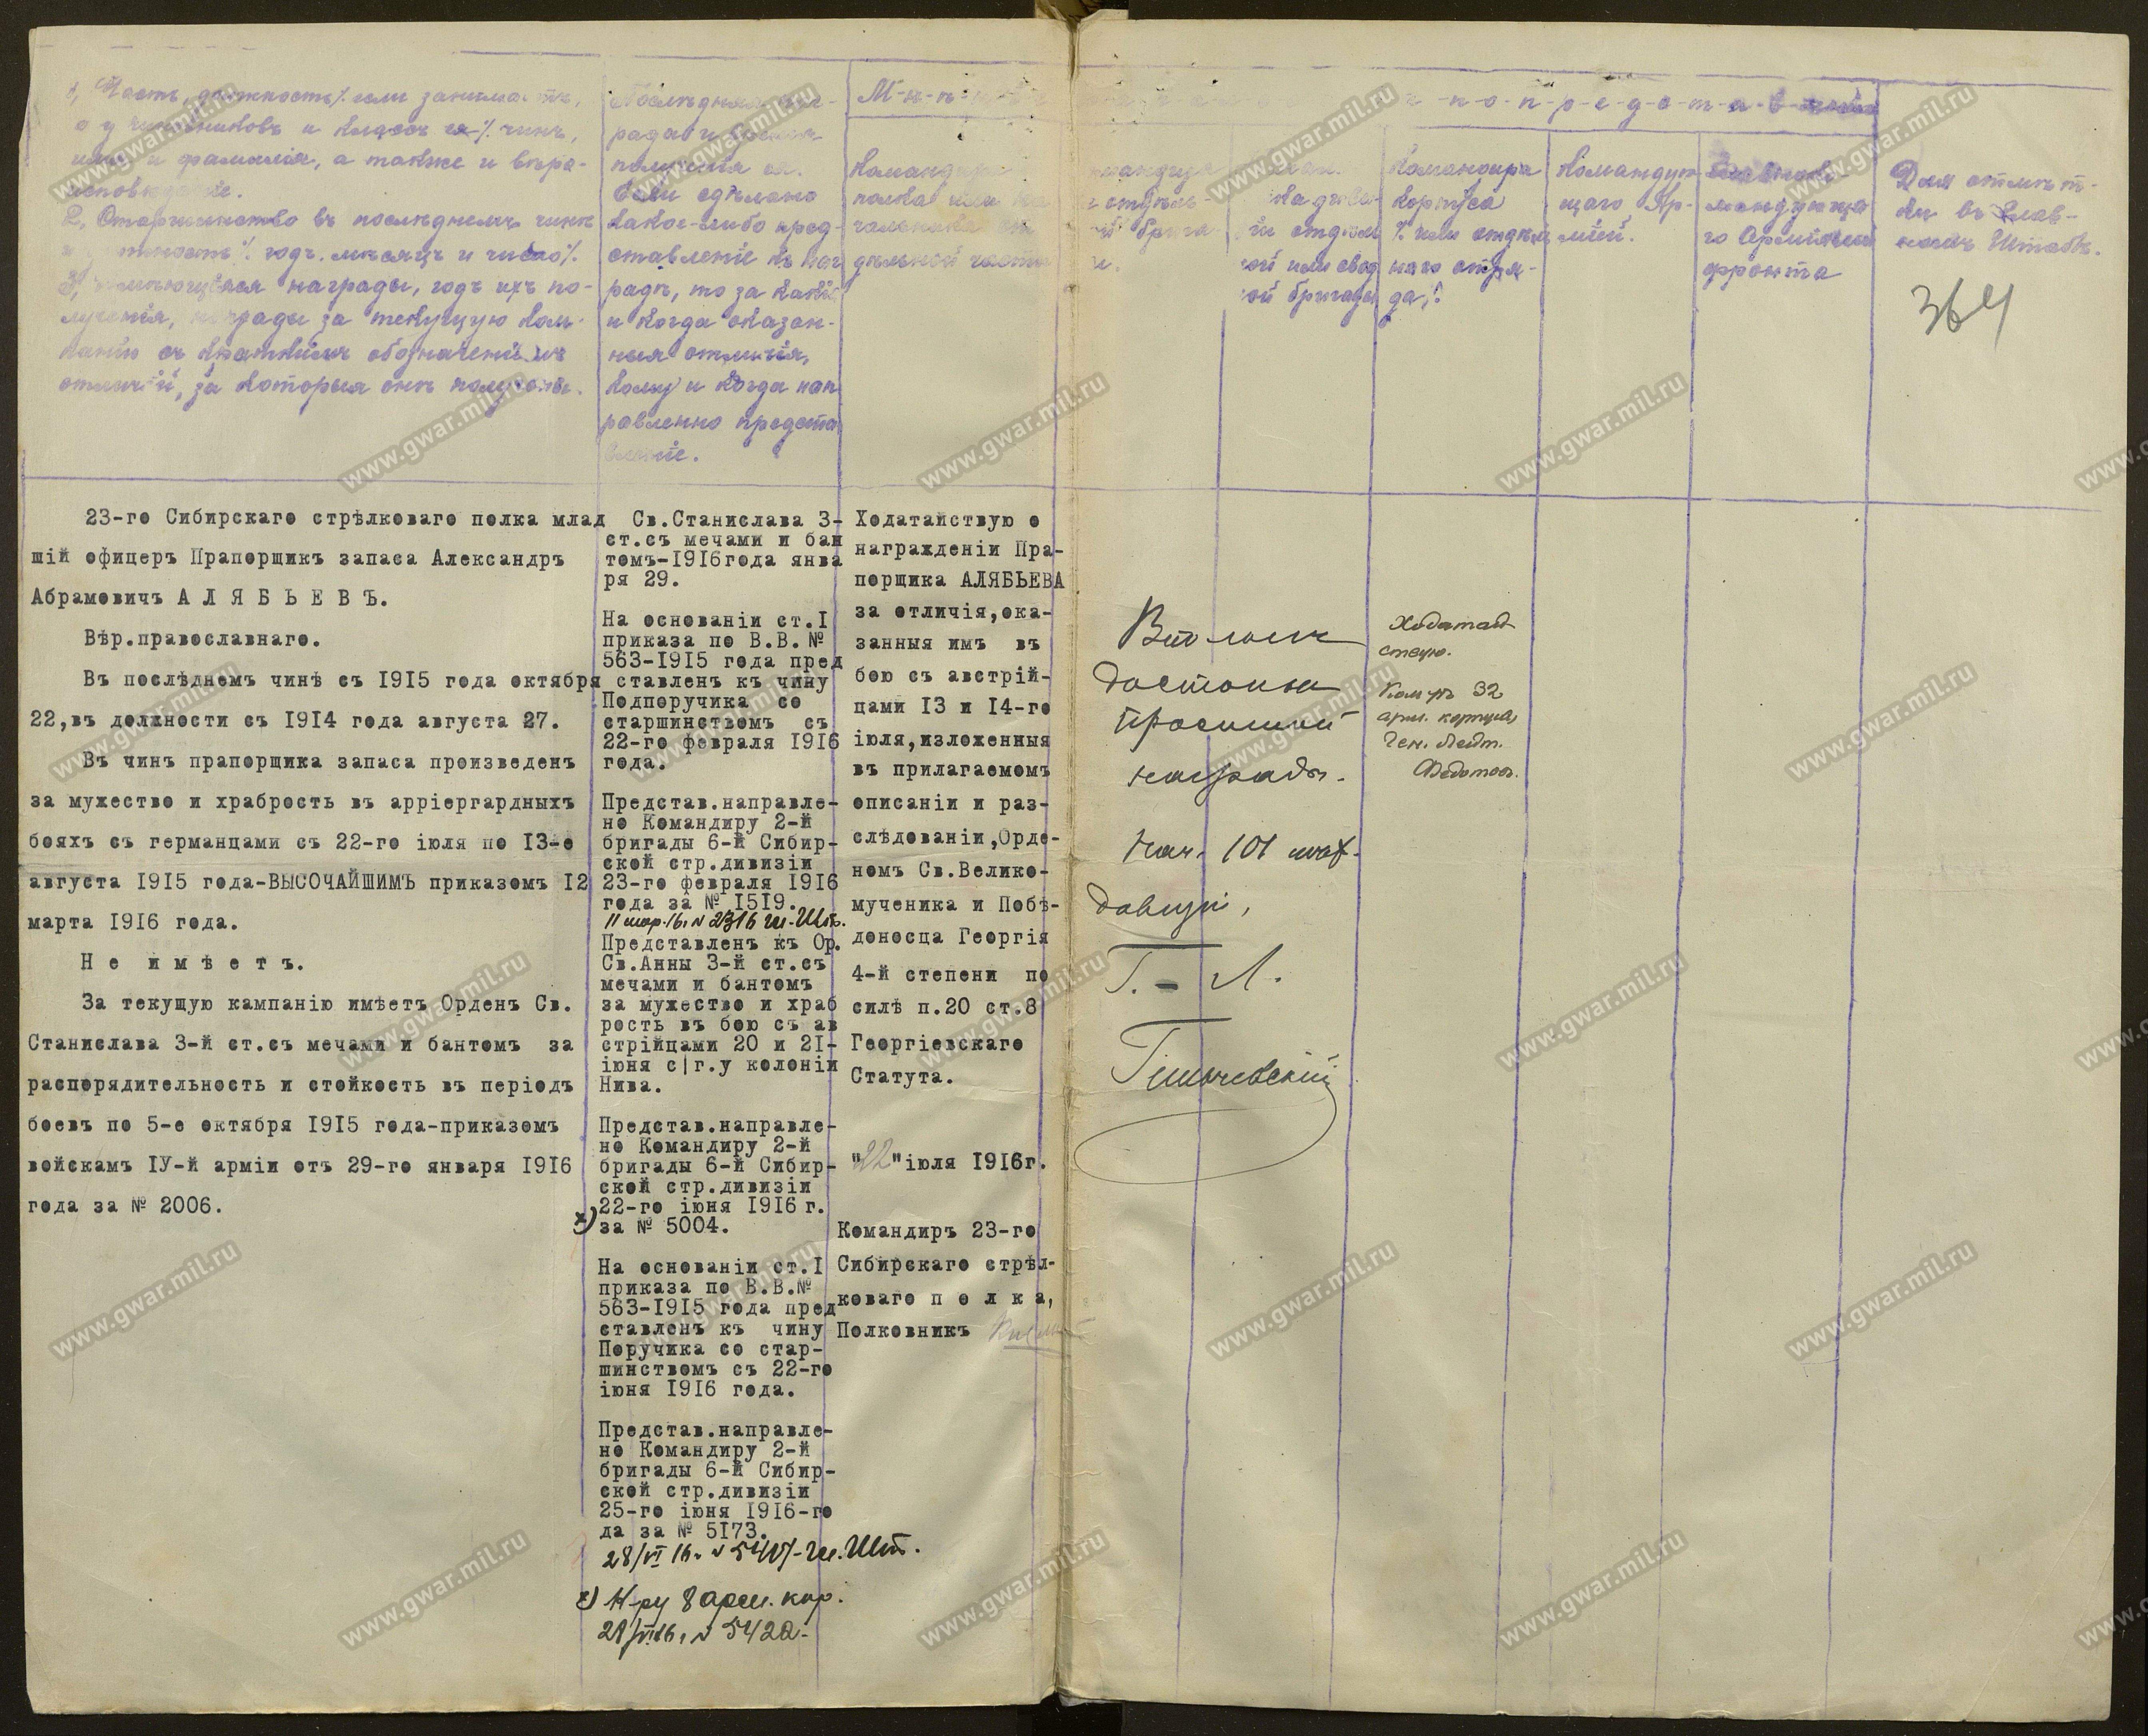 1, Часть, должность % если занимаетъ,
о у чиновниковъ и классъ ея % чинъ,
имя и фамилія, а также и вѣро-
исповѣданіе.
2, Старшинство въ послѣднемъ чинѣ
% годъ, мѣсяцъ и число %
3, Имѣющіяся награды, годъ ихъ по-
лученія, награды за текущую кам-
панію съ краткимъ обозначеніемъ
отличій, за которыя онѣ получены.
Послѣдняя наг-
рада и время
полученія ея.
Если сдѣлано
какое-либо пред-
ставленіе къ наг
радѣ, то за какія
и когда оказан-
ныя отличія,
кому и когда нап
равленно предста
вленіе.
М-н-ѣ-н-і-
п-о п-р-е-д-с-т-а-в-
Командира
полка или на
чальника от
дѣльной части
Командира
корпуса
% или отдѣль
наго отря-
да %
Командую
щаго Ар-
міей.
го Арміями
фронта
Для отмѣт-
ки въ Глав-
номъ Штабѣ.
364
23-го Сибирскаго стрѣлковаго полка млад
шій офицеръ Прапорщикъ запаса Александръ
Абрамовичъ А Л Я Б Ь Е В Ъ.
Вѣр.православнаго.
Въ послѣднемъ чинѣ съ 1915 года октября
22,въ должности съ 1914 года августа 27.
Въ чинъ прапорщика запаса произведенъ
за мужество и храбрость въ арріергардныхъ
бояхъ съ германцами съ 22-го іюля по 13-е
августа 1915 года-ВЫСОЧАЙШИМЪ приказомъ 12
марта 1916 года.
Н е и м ѣ е т ъ.
За текущую кампанію имѣетъ Орденъ Св.
Станислава 3-й ст.съ мечами и бантомъ за
распорядительность и стойкость въ періодъ
боевъ по 5-е октября 1915 года-приказомъ
войскамъ IУ-й арміи отъ 29-го января 1916
года за № 2006.
Св.Станислава 3-
ст.съ мечами и бан
томъ-1916года янва
ря 29.
На основаніи ст.I
приказа по В.В.№
563-1915 года пред
ставленъ къ чину
Подпоручика со
старшинствомъ съ
22-го февраля 1916
года.
Представ.направле-
но Командиру 2-й
бригады 6-й Сибир-
ской стр.дивизіи
23-го февраля 1916
года за № 1519.
11 мар. 16. № 2316 Ш.-Шт.
Представленъ къ Ор.
Св.Анны 3-й ст.съ
мечами и бантомъ
за мужество и храб
рость въ бою съ ав
стрійцами 20 и 21-
іюня с|г.у колоніи
Нива.
Представ.направле-
но Командиру 2-й
бригады 6-й Сибир-
ской стр.дивизіи
22-го іюня 1916 г.
х) за № 5004.
На основаніи ст.I
приказа по В.В.№
563-1915 года пред
ставленъ къ чину
Поручика со стар-
шинствомъ съ 22-го
іюня 1916 года.
Представ.направле-
но Командиру 2-й
бригады 6-й Сибир-
ской стр.дивизіи
25-го іюня 1916-го
да за № 5173.
28/VI 16. №
х) К-ру 8 арм. кор.
28/VI 16. № 5422-
Ходатайствую о
награжденіи Пра-
порщика АЛЯБЬЕВА
за отличія,ока-
занныя имъ въ
бою съ австрій-
цами 13 и 14-го
іюля,изложенныя
въ прилагаемомъ
описаніи и раз-
слѣдованіи,Орде-
номъ Св.Велико-
мученика и Побѣ-
доносца Георгія
4-й степени по
силѣ п.20 ст.8
Георгіевскаго
Статута.
"22"іюля 1916г.
Командиръ 23-го
Сибирскаго стрѣл-
коваго п о л к а,
Полковникъ
Вполнѣ
достоинъ
просимой
награды.
Нач. 101 пѣх.
дивизіи,
Г.-Л.
Гильчевскій
Ходатай
ствую.
Ком-ръ 32
арм. корпуса,
Ген. Лейт.
Федотовъ.
www.gwar.mil.ru